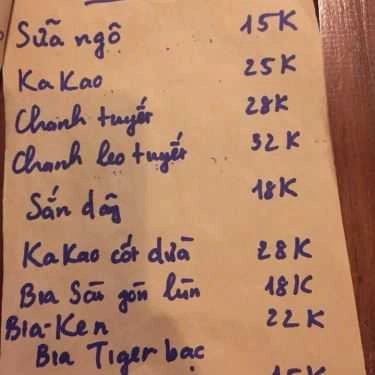 Sữa ngô 15K
KaKao 25K
Chanh tuyết 28K
Chanh leo tuyết 32K
Sắn dây 18K
KaKao cốt dừa 28K
Bia Sài gòn lùn 18K
Bia-Ken 22K
Bia Tiger bạc
15K